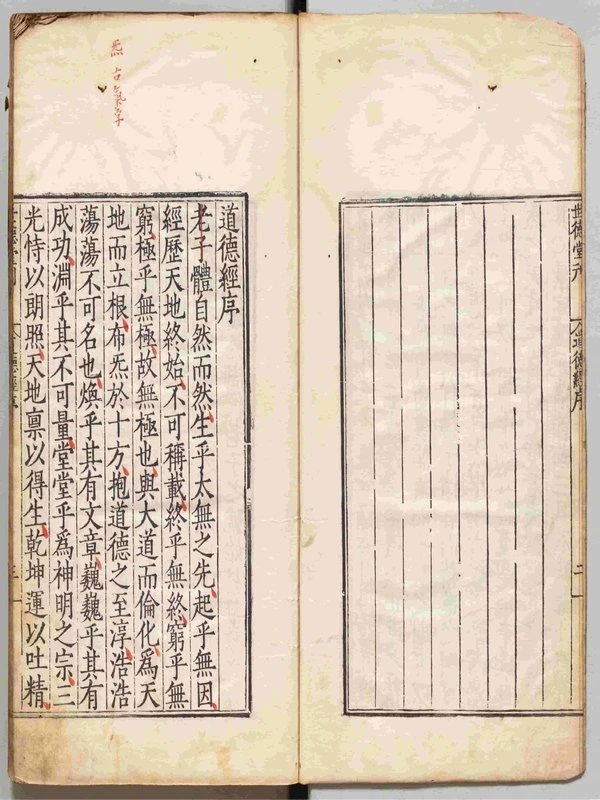 世德堂刊
道德經序
二
道德經序
老子體自然而然生乎太無之先起乎無因
經歷天地終始不可稱載終乎無終窮乎無
窮極乎無極故無極也與大道而倫化爲天
地而立根布炁於十方抱道德之至淳浩浩
蕩蕩不可名也煥乎其有文章巍巍乎其有
成功淵乎其不可量堂堂乎爲神明之宗三
光恃以朗照天地禀以得生乾坤運以吐精
炁古氣字